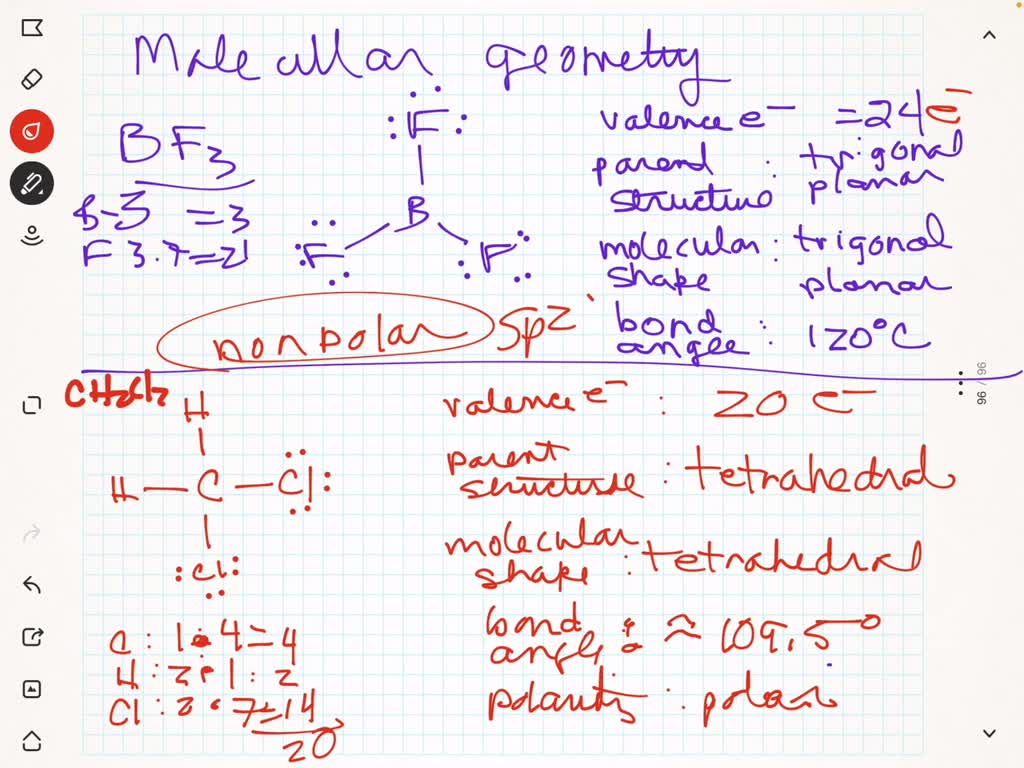 Molecular geometry
BF3
B-3 = 3
F 3.7=21
:F:
B
:F: F:
nonpolar sp2
valence e- = 24 e-
parend : trigonal
structure planar
molecular : trigonal
shape planar
bond
angle : 120°C
96 / 96
CH2Cl2
H
H - C - Cl:
:Cl:
C : 1 • 4 = 4
H : 2 • 1 : 2
Cl : 2 • 7 = 14
20
valence e- : 20 e-
parent
structure : tetrahedral
molecular
shape : tetrahedral
bond
angle : ≈ 109.5°
polarity : polar